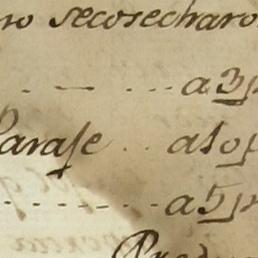 no secosecharo
. - ... a 3p
Parase .. a 10p
. - - - - - - a 5p